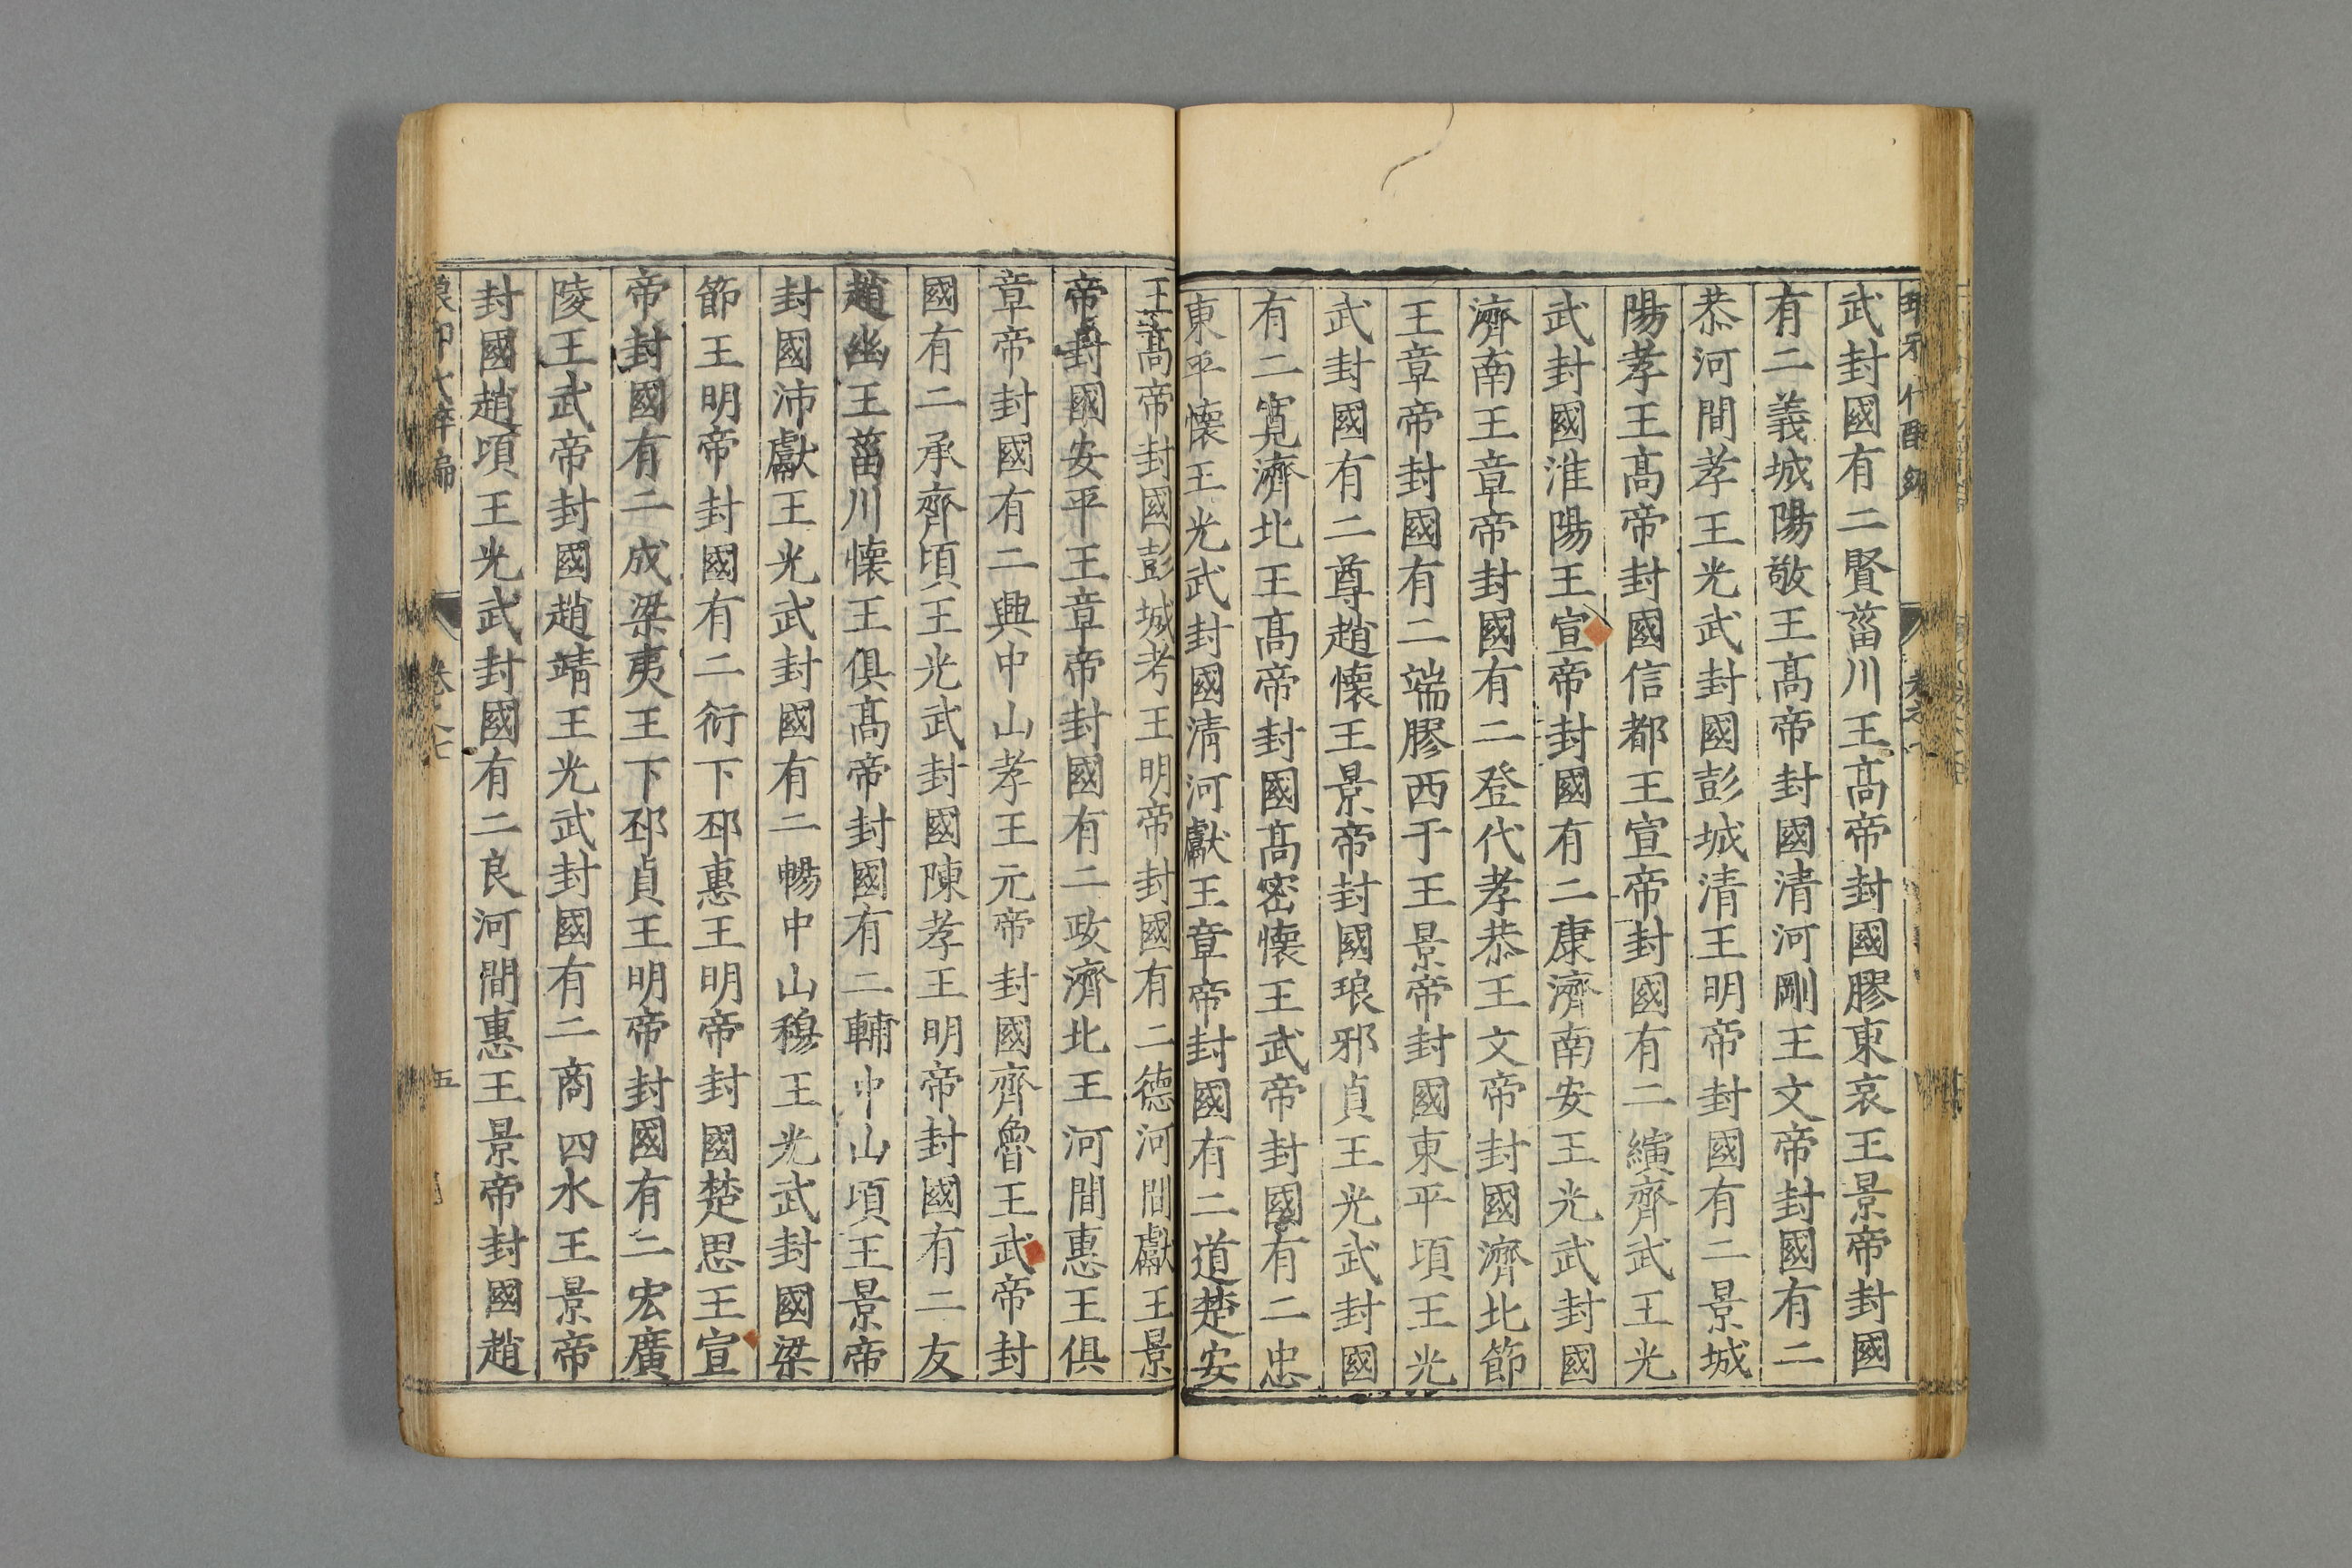 武封國有二賢菑川王高帝封國膠東哀王景帝封國
有二義城陽敬王高帝封國清河剛王文帝封國有二
恭河間孝王光武封國彭城清王明帝封國有二景城
陽孝王高帝封國信都王宣帝封國有二縯齊武王光
武封國淮陽王宣帝封國有二康濟南安王光武封國
濟南王章帝封國有二登代孝恭王文帝封國濟北節
王章帝封國有二端膠西于王景帝封國東平頃王光
武封國有二尊趙懷王景帝封國琅邪貞王光武封國
有二寬濟北王高帝封國高密懷王武帝封國有二忠
東平懷王光武封國清河獻王章帝封國有二道楚安
王高帝封國彭城考王明帝封國有二德河間獻王景
帝封國安平王章帝封國有二政濟北王河間惠王俱
章帝封國有二興中山孝王元帝封國齊魯王武帝封
國有二承齊頃王光武封國陳孝王明帝封國有二友
趙幽王菑川懷王俱高帝封國有二輔中山頃王景帝
封國沛獻王光武封國有二暢中山穆王光武封國梁
節王明帝封國有二衍下邳惠王明帝封國楚思王宣
帝封國有二成梁夷王下邳貞王明帝封國有二宏廣
陵王武帝封國趙靖王光武封國有二商四水王景帝
封國趙頃王光武封國有二良河間惠王景帝封國趙
卷之七
五